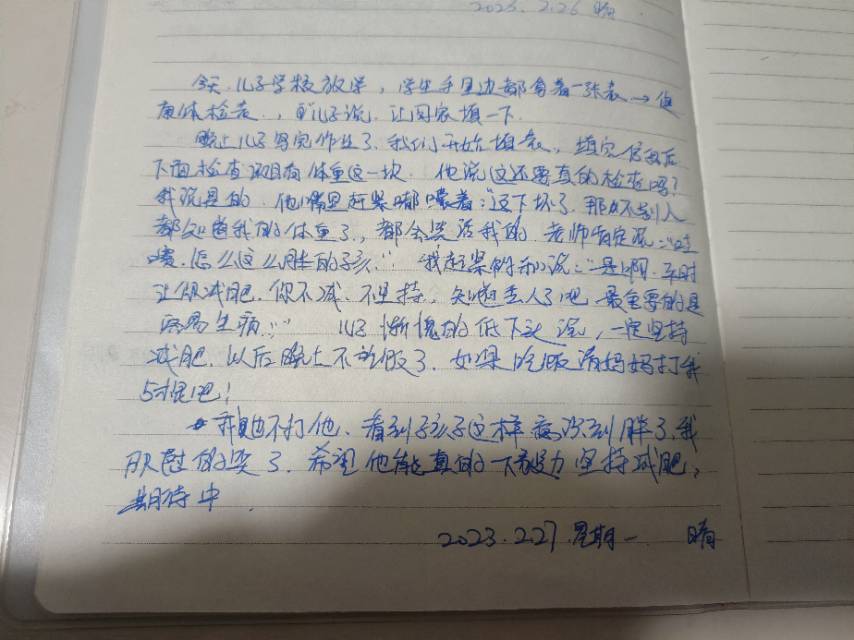 2023.2.26 晴
今天儿子学校放学,学生手里边都拿着一张表→健
康体检表.,儿子说.让回家填一下.
晚上儿子写完作业了.我们开始填表,填完信息后
下面检查项目有体重这一块.他说这还要真的检查吗?
我说是的.他嘴里赶紧嘟囔着:“这下坏了.那么别人
都知道我的体重了.都会笑话我的.老师肯定说:“哇
噻.怎么这么胖的孩.”我赶紧附和说:“是啊.平时
让你减肥.你不减.不坚持.知道丢人了吧.最重要的是
容易生病.”儿子惭愧的低下头说,一定坚持
减肥.以后晚上不吃饭了.如果吃饭请妈妈打我
5棍吧!
我也不打他.看到孩子这样意识到胖了.我
欣慰的笑了.希望他能真的下努力坚持减肥,
期待中.
2023.2.27.星期一 晴